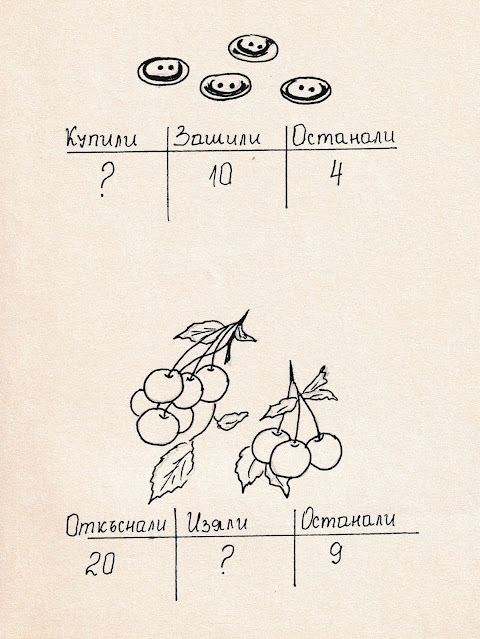 Купили Зашили Останали
? 10 4
Откъснали Изяли Останали
20 ? 9